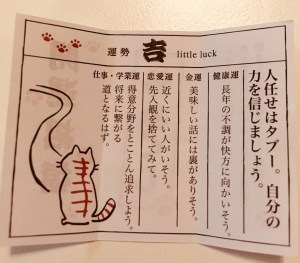 運勢 吉 little luck
人任せはタブー。自分の
力を信じましょう。
健康運
長年の不調が快方に向かいそう。
金運
美味しい話には裏がありそう。
恋愛運
近くにいい人がいそう。
先入観を捨ててみて。
仕事・学業運
得意分野をとことん追求しよう。
将来に繋がる
道となるはず。